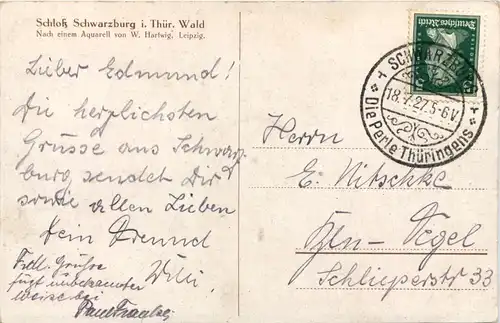 Schloß Schwarzburg i. Thür. Wald
Nach einem Aquarell von W. Hartwig, Leipzig.
Lieber Edmund!
Die herzlichsten
Grüsse aus Schwarz-
burg sendet Dir
sowie allen Lieben
Dein Freund
Willi
Frdl. Grüße
fügt unbekannter
weise bei
Deutsches Reich
SCHWARZBURG
18.7.27.5-6V.
Die Perle Thüringens
Herrn
E. Nitschke
Bln - Tegel
Schlieperstr 33